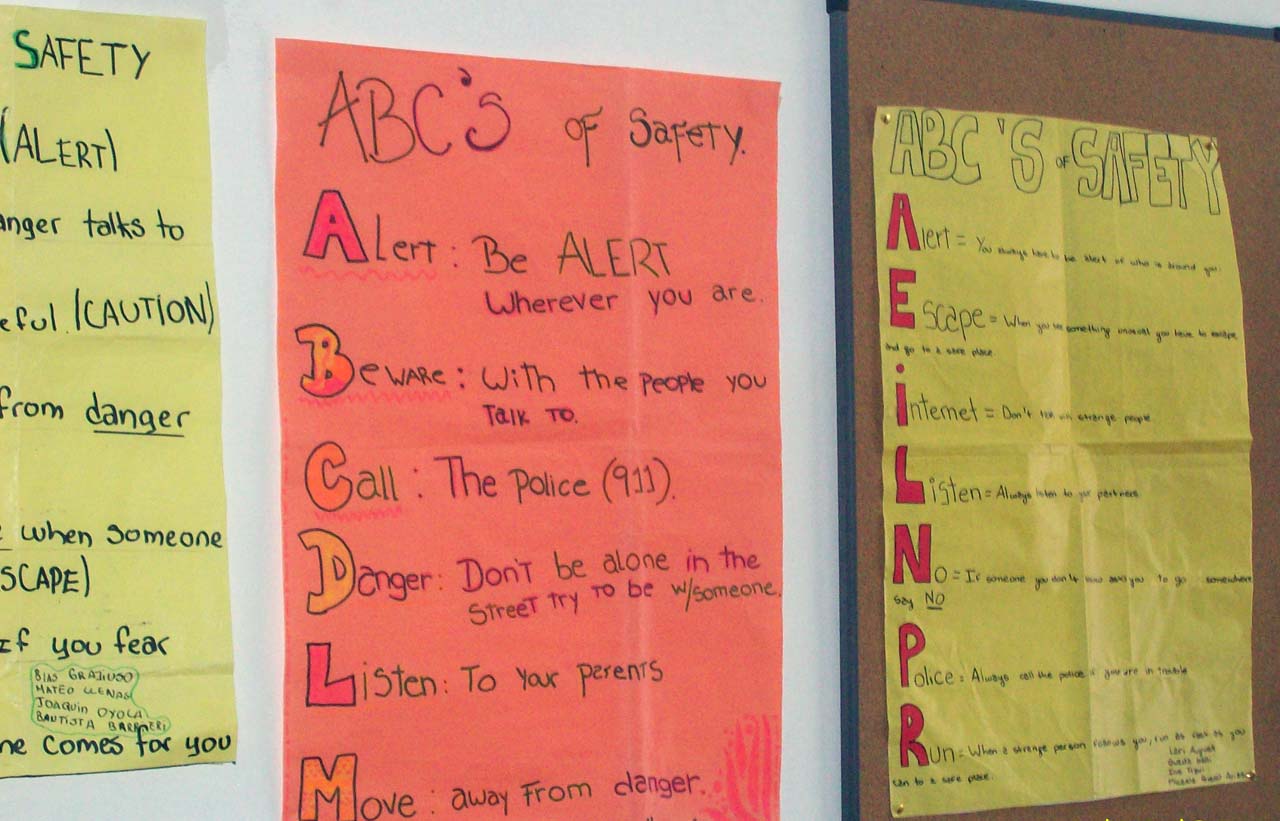 SAFETY
(ALERT)
anger talks to
eful (CAUTION)
from danger
when someone
SCAPE)
If you fear
MATEO LLENAS
JOAQUIN OYOLA
BAUTISTA
ne comes for you
ABC'S of Safety.
Alert: Be ALERT
Wherever you are.
Beware: With the people you
Talk To.
Call: The Police (911).
Danger: Don't be alone in the
Street try to be w/someone.
Listen: To your parents
Move: away From danger.
ABC'S OF SAFETY
Alert = You always have to be alert of who is around you.
Escape = When you see something unusual you have to escape
and go to a safe place
internet = Don't talk with strange people
Listen = Always listen to your partners
No = If someone you don't know asks you to go somewhere
say NO
Police = Always call the police if you are in trouble
Run = When a strange person follows you, run as fast as you
can to a safe place.